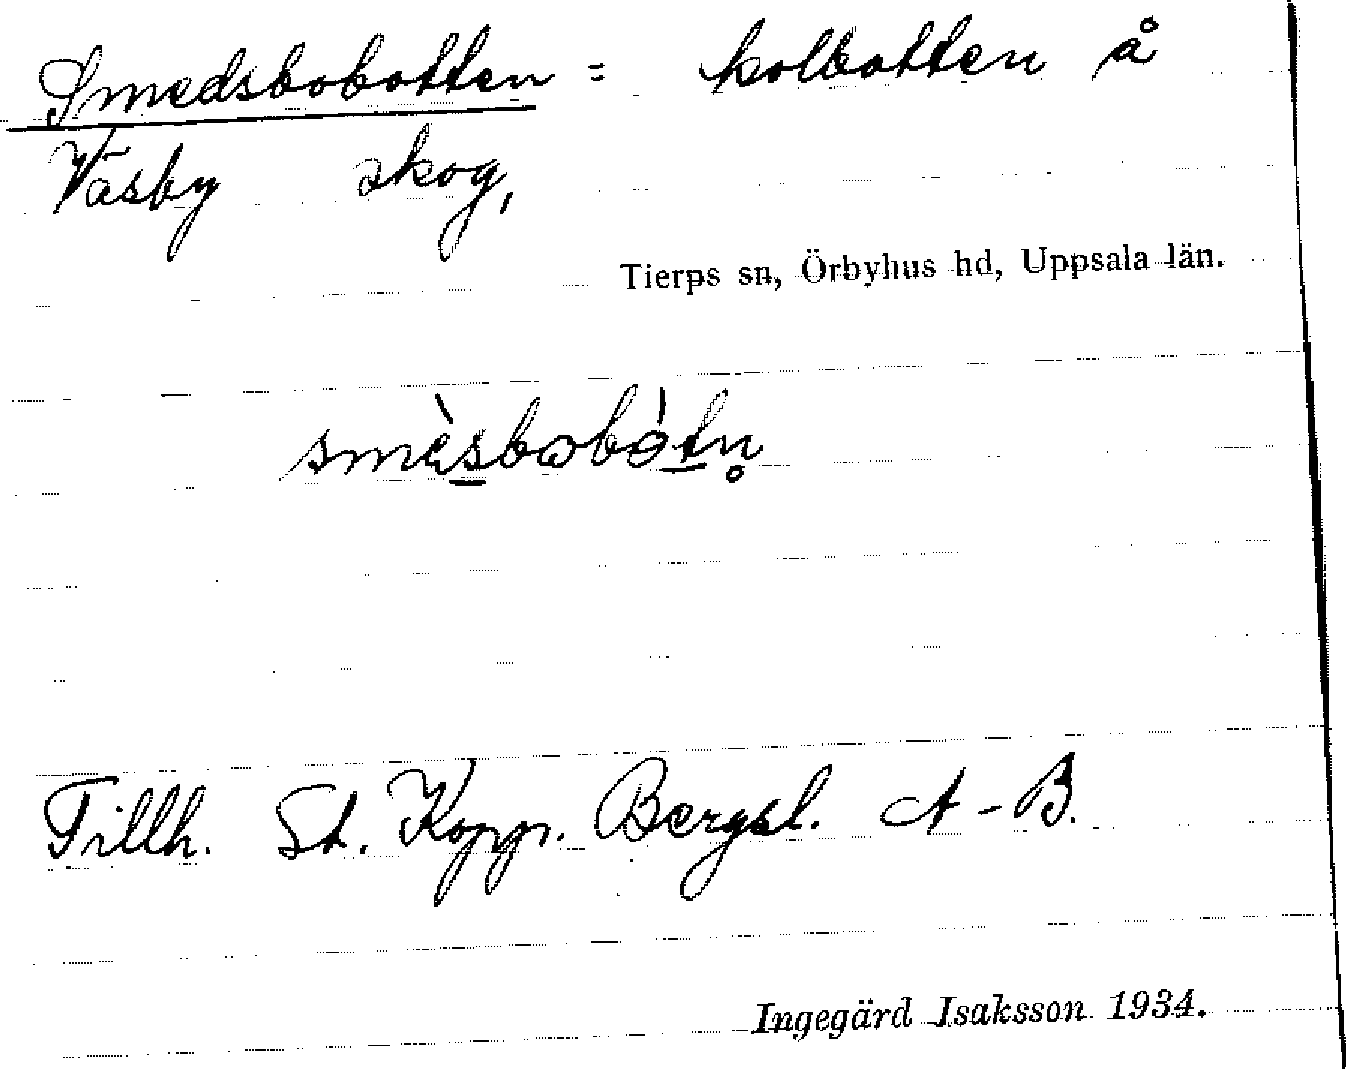 Smedsbobotten = kolbotten å
Väsby skog,
Tierps sn, Örbyhus hd, Uppsala län.
smèsbobótn̥
Tillh. St. Kopp. Bergsl. A-B.
Ingegärd Isaksson 1934.